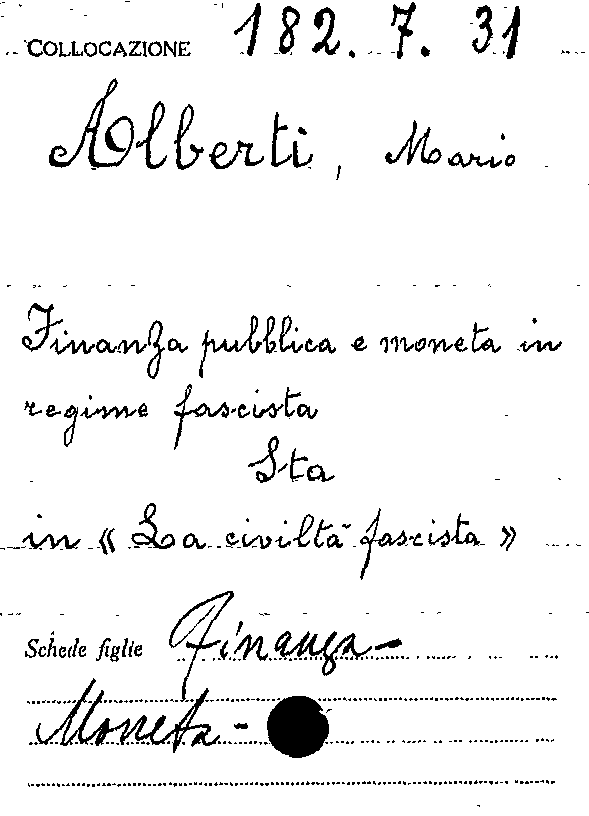 COLLOCAZIONE 182. 7. 31
Alberti, Mario
Finanza pubblica e moneta in
regime fascista
Sta
in « La civiltà fascista »
Schede figlie Finanza-
Moneta-